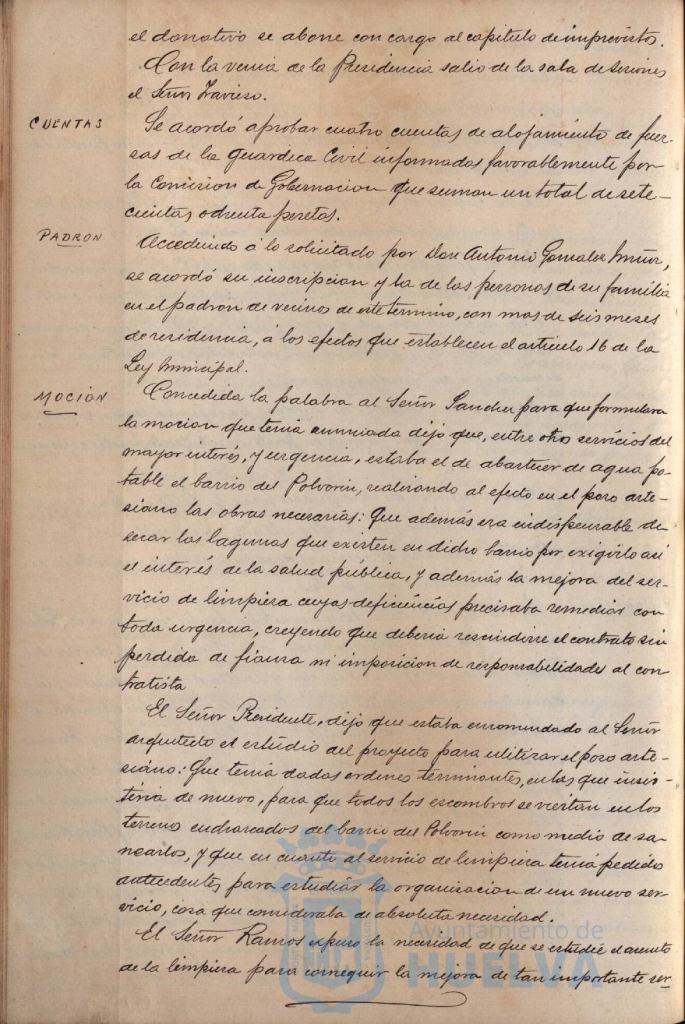 el donativo se abone con cargo al capitulo de imprevistos.
Con la venia de la Presidencia salio de la sala de sesiones
el Señor Travieso.
CUENTAS
Se acordó aprobar cuatro cuentas de alojamiento de fuer-
zas de la Guardia Civil informadas favorablemente por
la Comision de Gobernacion que suman un total de sete-
cientas ochenta pesetas.
PADRON
Accediendo á lo solicitado por Don Antonio Gonzalez Muñoz,
se acordó su inscripcion y la de las personas de su familia
en el padron de vecinos de este termino, con mas de seis meses
de residencia, á los efectos que establecen el articulo 16 de la
Ley Municipal.
MOCIÓN
Concedida la palabra al Señor Sanchez para que formulara
la mocion que tenia anunciada dijo que, entre otros servicios del
mayor interés, y urgencia, estaba el de abastecer de agua po-
table el barrio del Polvorin, realizando al efecto en el pozo arte-
siano las obras necesarias: Que además era indispensable de-
secar las lagunas que existen en dicho barrio por exigirlo asi
el interés de la salud pública, y además la mejora del ser-
vicio de limpieza cuyas deficiencias precisaba remediar con
toda urgencia, creyendo que deberia rescindirse el contrato sin
perdida de fianza ni imposicion de responsabilidades al con-
tratista
El Señor Presidente, dijo que estaba encomendado al Señor
arquitecto el estudio del proyecto para utilizar el pozo arte-
siano: Que tenia dadas ordenes terminantes, en las que insis-
tiria de nuevo, para que todos los escombros se viertan en los
terrenos encharcados del barrio del Polvorin como medio de sa-
nearlos, y que en cuanto al servicio de limpieza tenia pedido
antecedentes para estudiar la organizacion de un nuevo ser-
vicio, cosa que consideraba de absoluta necesidad.
El Señor Ramos expuso la necesidad de que se estudie el asunto
de la limpieza para conseguir la mejora de tan importante ser-
Ayuntamiento de
HUELVA